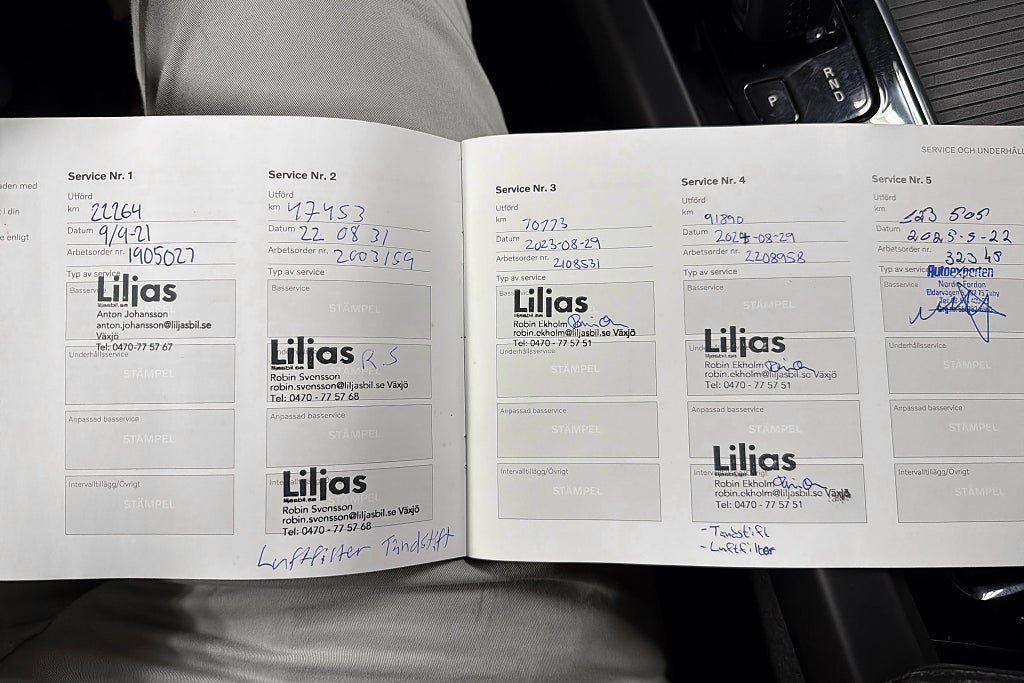 P
R
N
D
SERVICE OCH UNDERHÅLL
aden med
t i din
e enligt
Service Nr. 1
Utförd
km 22264
Datum 9/9-21
Arbetsorder nr. 1905027
Typ av service
Basservice
Liljas
liljasbil.se
Anton Johansson
anton.johansson@liljasbil.se
Växjö
Tel: 0470-77 57 67
Underhållsservice
STÄMPEL
Anpassad basservice
STÄMPEL
Intervalltillägg/Övrigt
STÄMPEL
Service Nr. 2
Utförd
km 47453
Datum 22 08 31
Arbetsorder nr. 2003159
Typ av service
Basservice
STÄMPEL
Liljas R.S
liljasbil.se
Robin Svensson
robin.svensson@liljasbil.se Växjö
Tel: 0470 - 77 57 68
Anpassad basservice
STÄMPEL
Liljas
liljasbil.se
Robin Svensson
robin.svensson@liljasbil.se Växjö
Tel: 0470 - 77 57 68
Luftfilter Tändstift
Service Nr. 3
Utförd
km 70773
Datum 2023-08-29
Arbetsorder nr. 2108531
Typ av service
Liljas
liljasbil.se
Robin Ekholm
robin.ekholm@liljasbil.se Växjö
Tel: 0470 - 77 57 51
Underhållsservice
STÄMPEL
Anpassad basservice
STÄMPEL
Intervalltillägg/Övrigt
STÄMPEL
Service Nr. 4
Utförd
km 91890
Datum 2024-08-29
Arbetsorder nr. 2208958
Typ av service
Basservice
STÄMPEL
Liljas
liljasbil.se
Robin Ekholm
robin.ekholm@liljasbil.se Växjö
Tel: 0470 - 77 57 51
Anpassad basservice
STÄMPEL
Liljas
liljasbil.se
Robin Ekholm
robin.ekholm@liljasbil.se Växjö
Tel: 0470 - 77 57 51
- Tändstift
- Luftfilter
Service Nr. 5
Utförd
km 123 505
Datum 2025-5-22
Arbetsorder nr. 32348
Typ av service
Basservice
Autoexperten
Underhållsservice
STÄMPEL
Anpassad basservice
STÄMPEL
Intervalltillägg/Övrigt
STÄMPEL